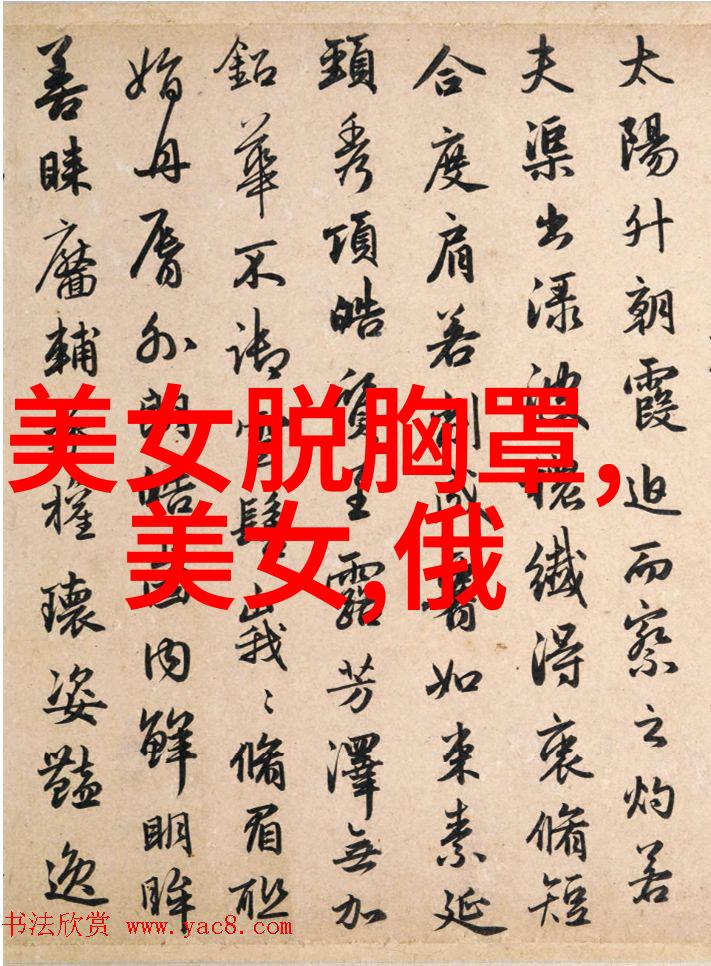 太陽升朝霞迫而察之灼若
夫渠出渌波穠纖得衷脩短
合度肩若削成如束素延
頸秀項皓質呈露芳澤無加
鉛華不御雲髻峩〻脩眉聯
娟丹脣外朗皓齒内鮮明眸
善睞靨輔承權瓌姿豔逸
美女脱胸罩,
美女,俄
书法欣赏 www.yac8.com